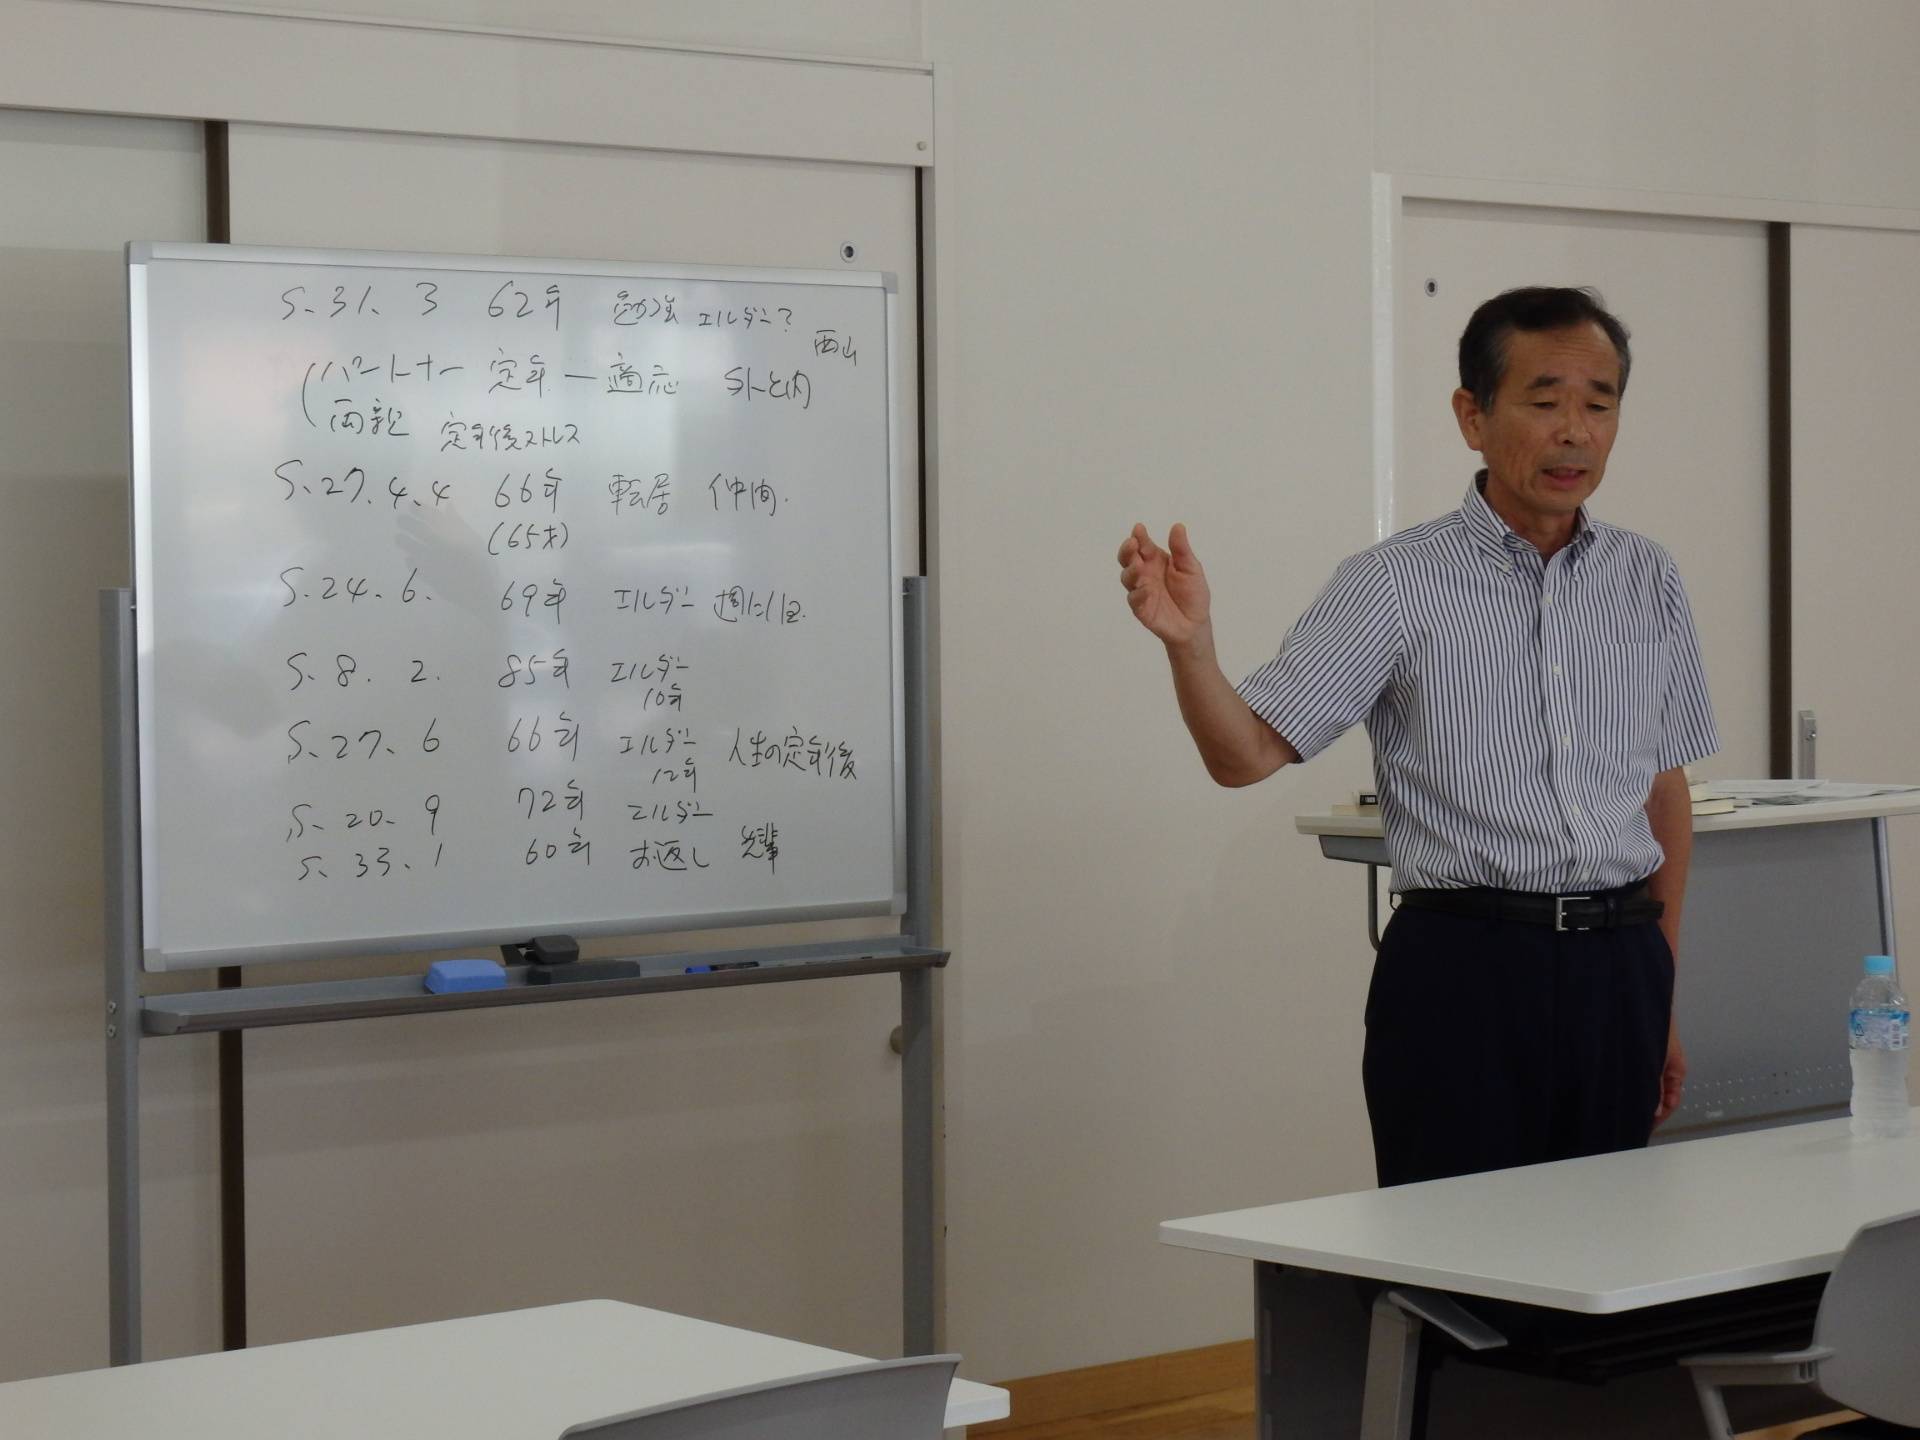 S、31、3 62年 勉強 エルダー?
西山
(パートナー 定年 — 適応 外と内
両親 定年後ストレス
S、27、4、4 66年 転居 仲間.
(65才)
S、24、6. 69年 エルダー 週に1回.
S、8. 2. 85年 エルダー
10年
S、27、6 66年 エルダー 人生の定年後
12年
S、20、9 72年 エルダー
S、33、1 60年 お返し 先輩